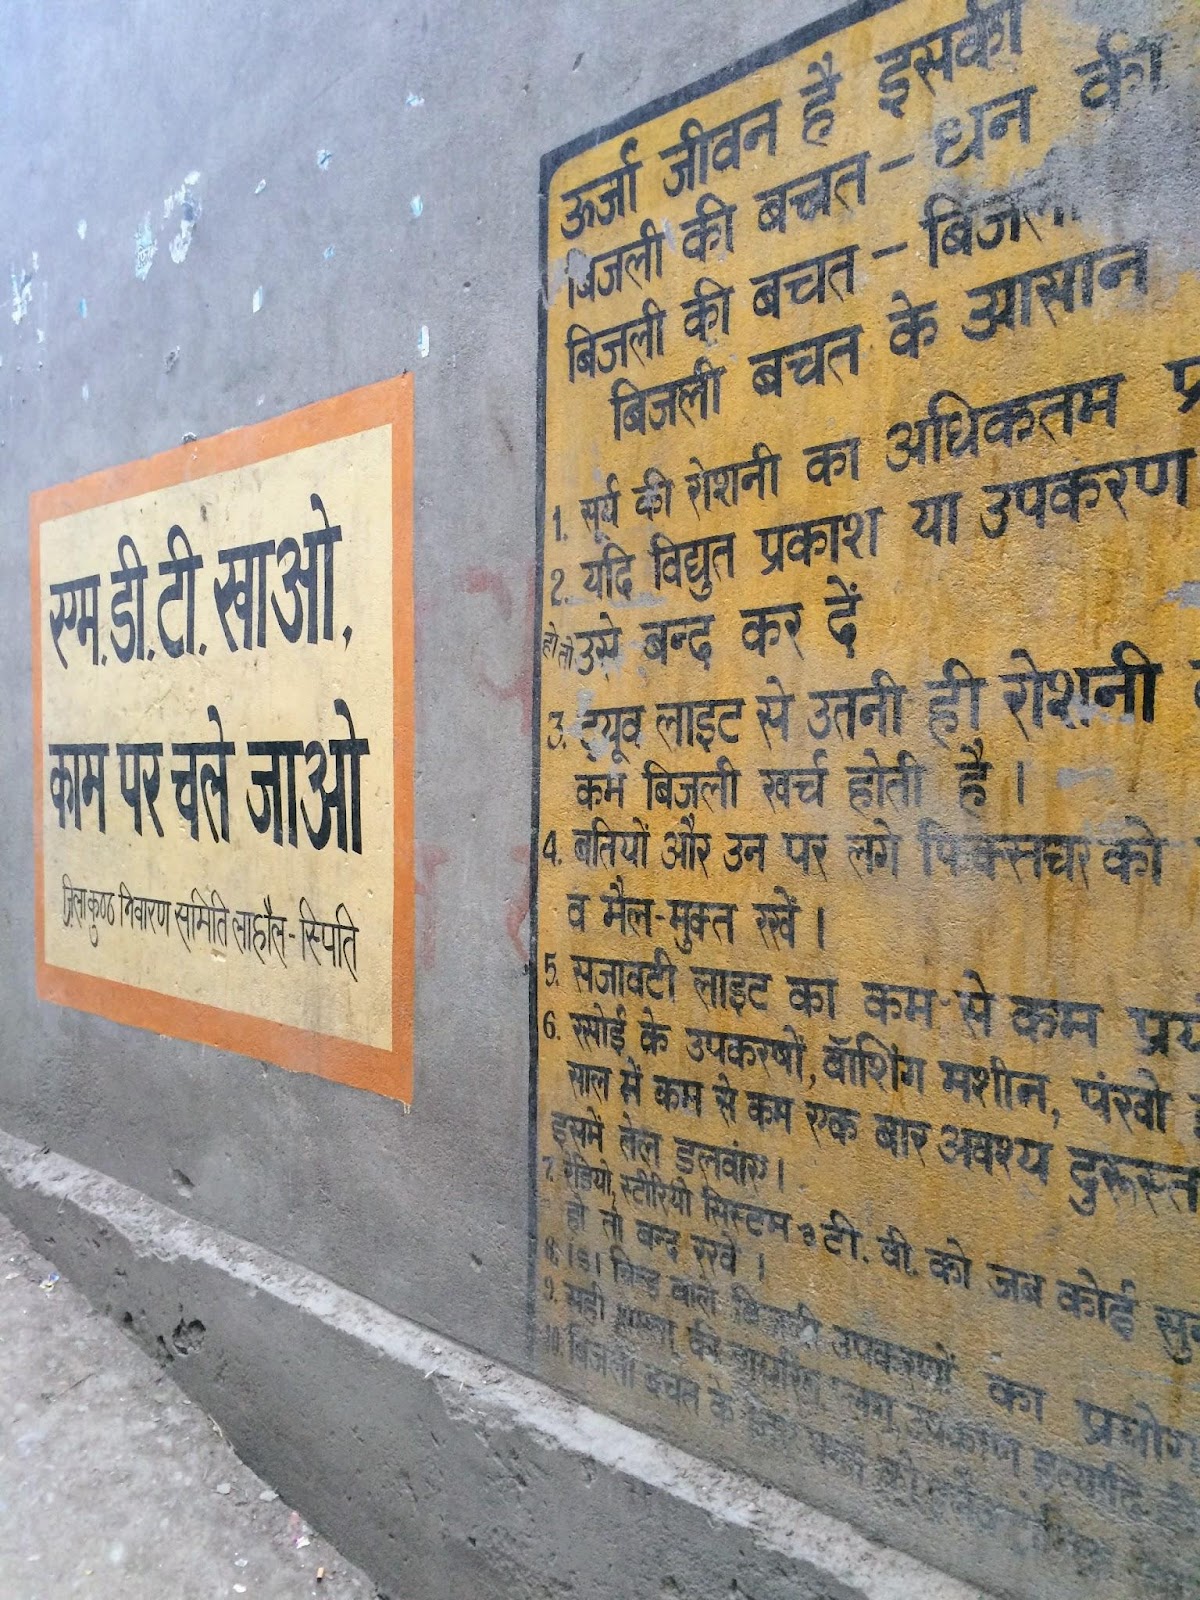 एम.डी.टी. खाओ,
काम पर चले जाओ
ज़िला कुष्ठ निवारण समिति लाहौल-स्पिति
ऊर्जा जीवन है इसकी
बिजली की बचत - धन की
बिजली की बचत - बिजली
बिजली बचत के आसान
1. सूर्य की रोशनी का अधिकतम
2. यदि विद्युत प्रकाश या उपकरण
हो तो उसे बन्द कर दें
3. ट्यूव लाइट से उतनी ही रोशनी
कम बिजली खर्च होती है।
4. बतियों और उन पर लगे फिक्सचर को
व मैल-मुक्त रखें।
5. सजावटी लाइट का कम से कम
6. रसोई के उपकरषों, वॉशिंग मशीन, पंखो
साल में कम से कम एक बार अवश्य दुरूस्त
इसमें तेल डलवांए।
7. रेडियो, स्टीरियो सिस्टम व टी.वी. को जब कोई
हो तो बन्द रखें।
8. isi चिन्ह वाले बिजली उपकरणों का
9. सही की उपकरण इत्यादि
10. बिजली बचत के को